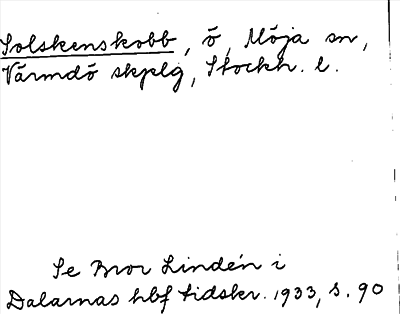 Solskenskobb, ö, Möja sn,
Värmdö skplg, Stockh. l.
Se Bror Lindén i
Dalarnas hbf tidskr. 1933, s. 90